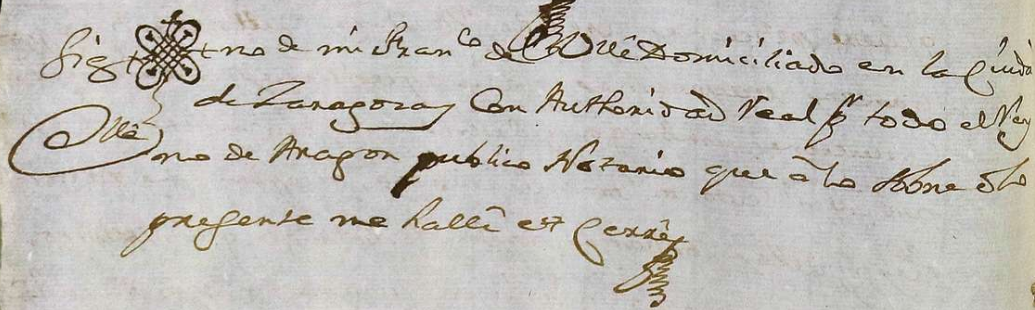 Sig no de mi Franco de Ollé Domiciliado en la Ciudd
de Zaragoza y Con Authoridad Real pr todo el Rey
no de Aragon publico Notario que a lo Sobre dho
presente me hallé et Cerré